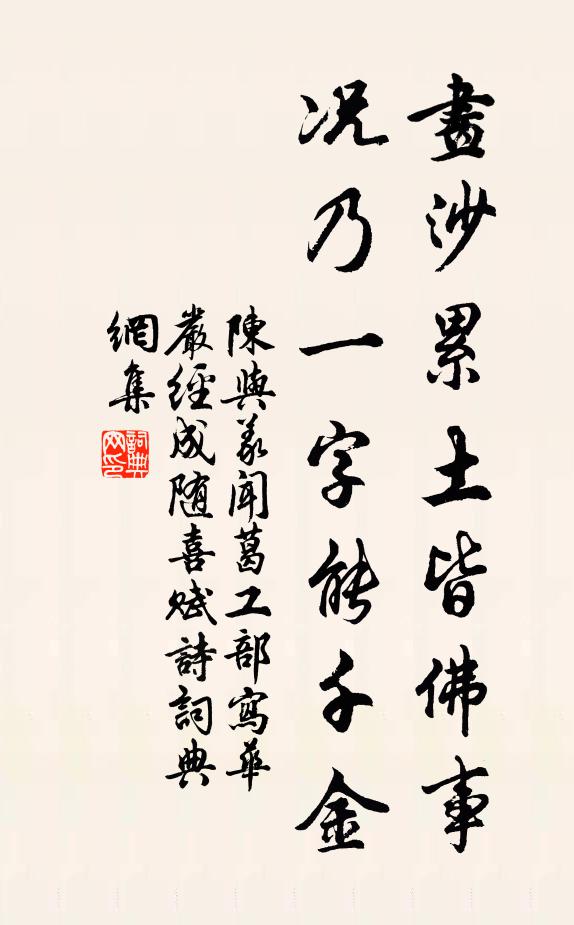 畫沙累土皆佛事
況乃一字能千金
陳與義聞葛工部寫華
嚴經成随喜賦詩詞典
網集
詞典
网印